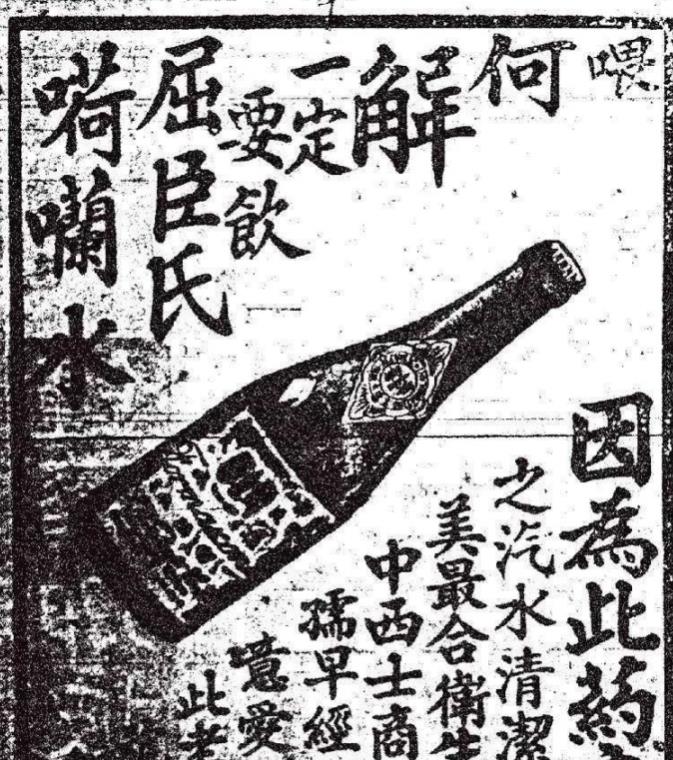 喂
何解
一定要飲
屈臣氏
嗬囒水
因為此葯
之汽水清潔
美最合衛生
中西士商
孺早經
意愛
此